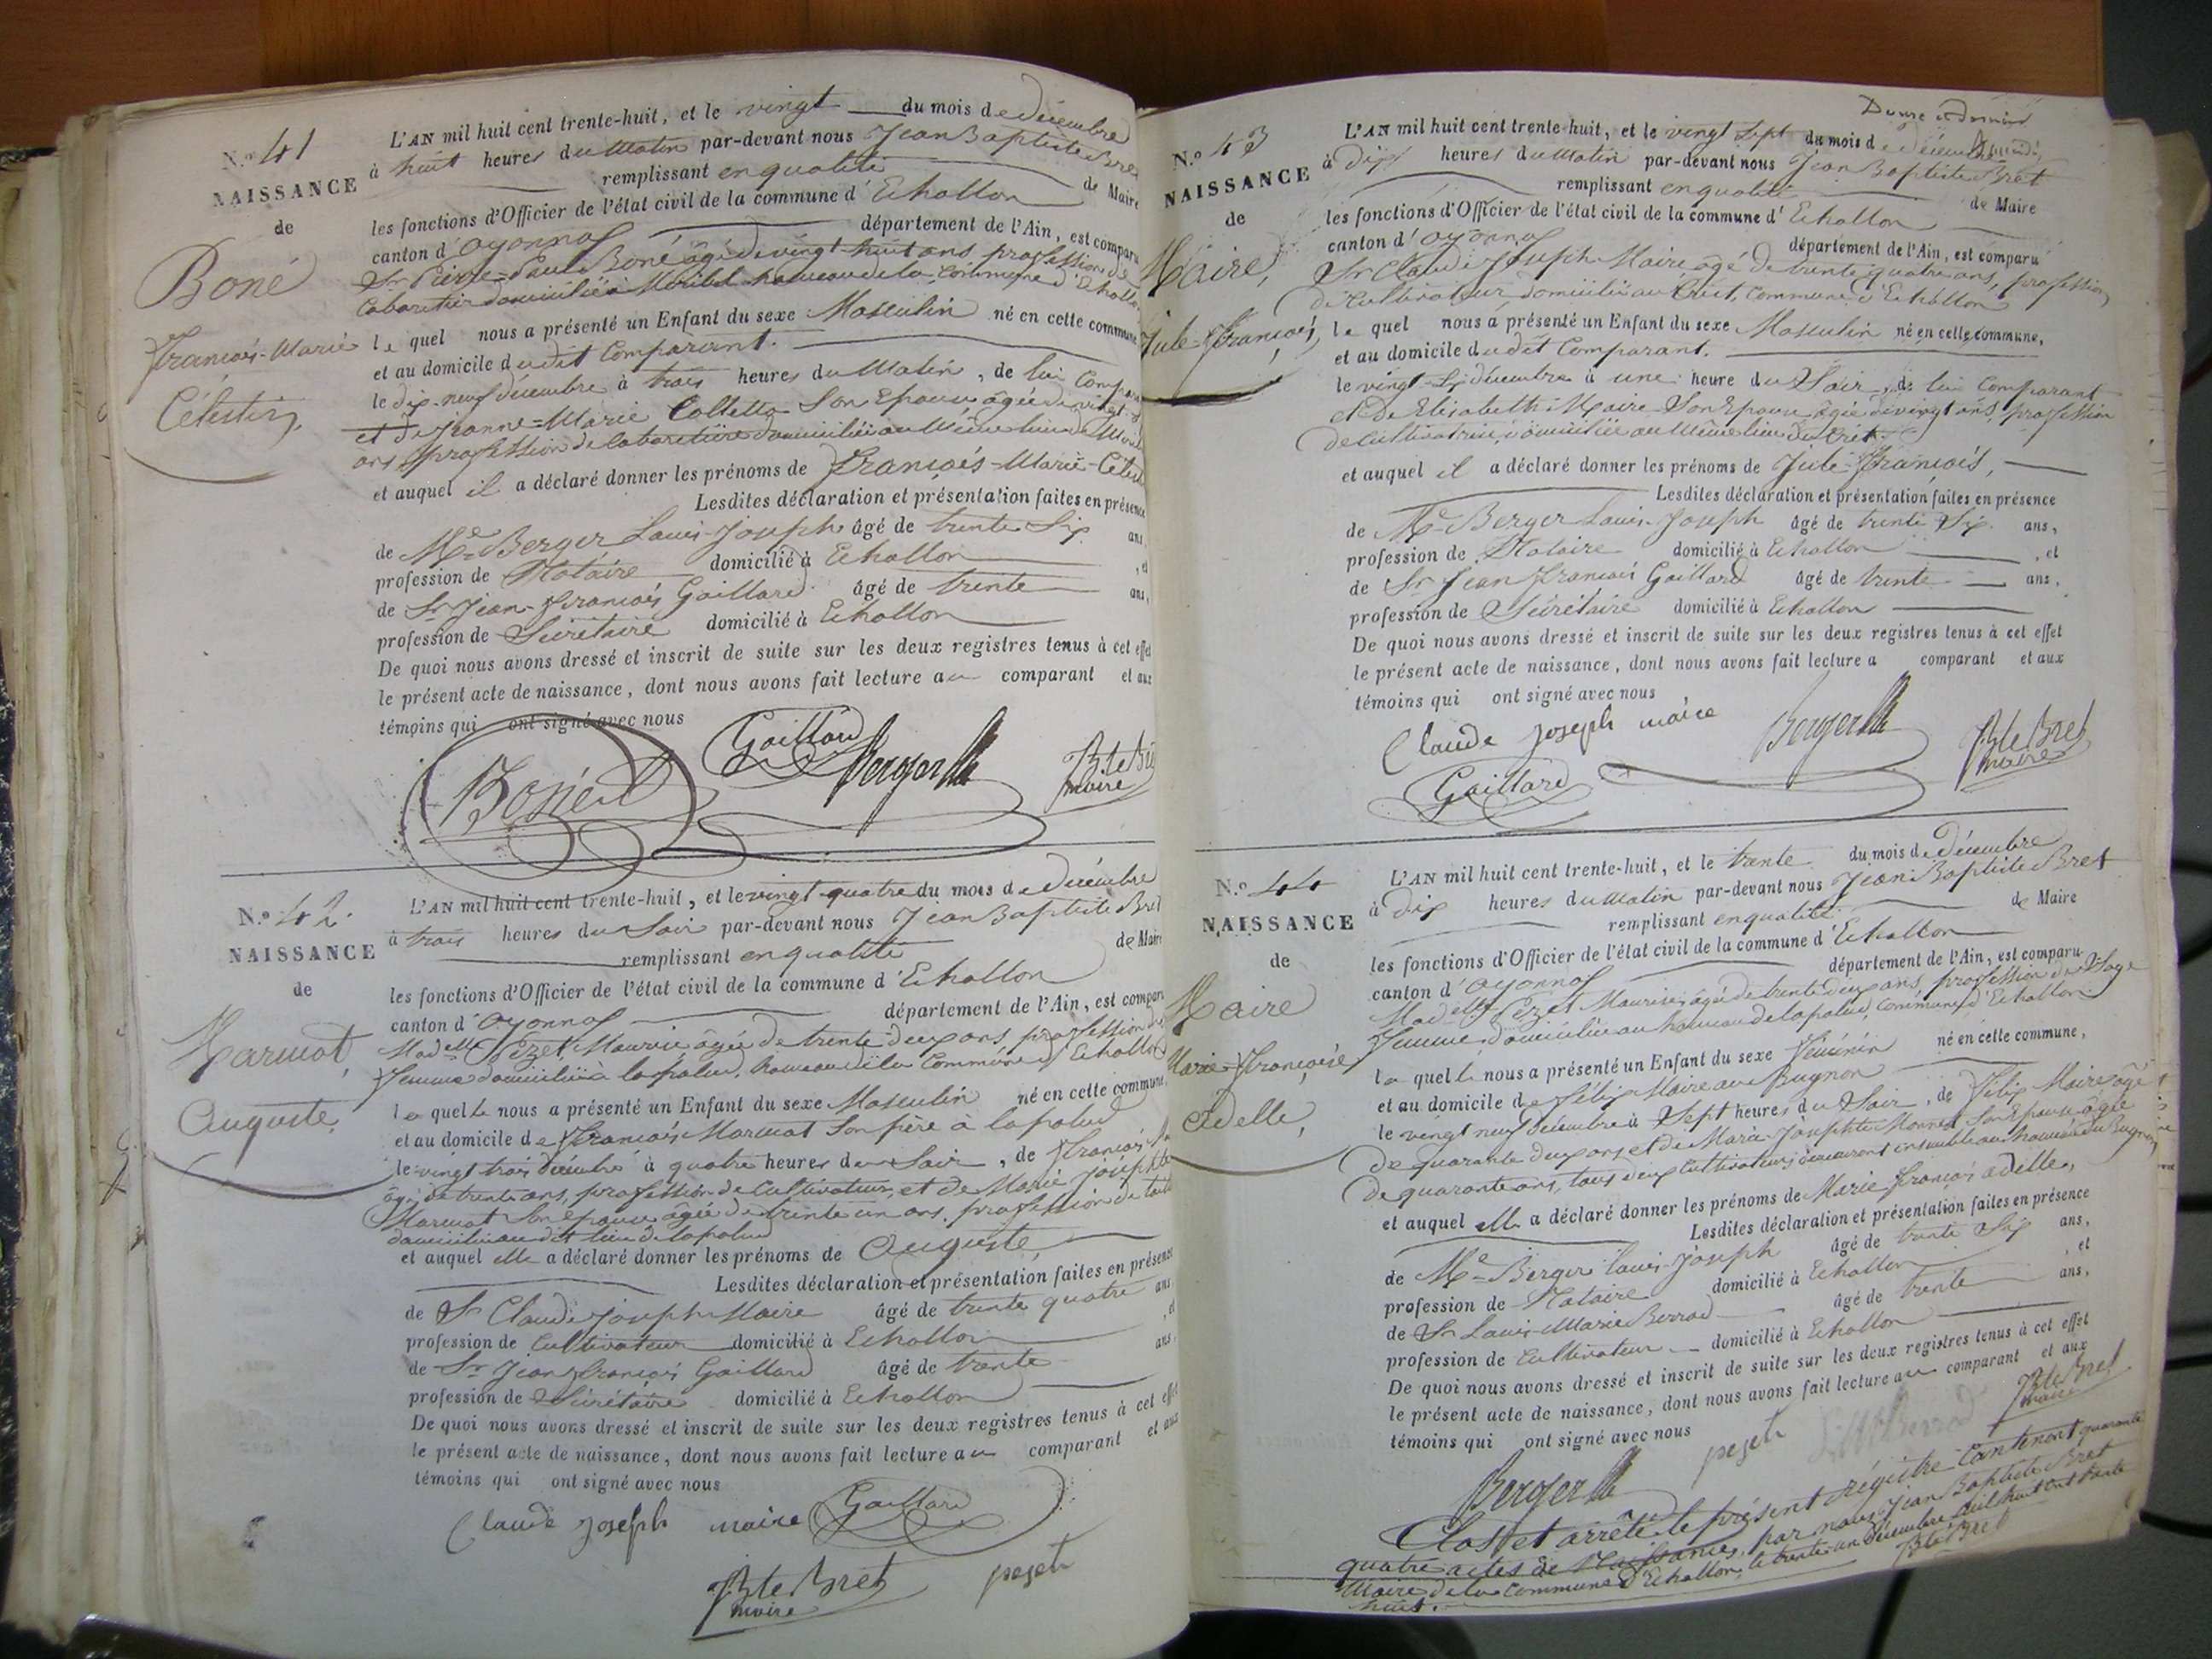 N.º 41
NAISSANCE
de
Boné
François-Marie
Célestin,
L'AN mil huit cent trente-huit, et le vingt du mois de Décembre
à huit heures du Matin par-devant nous Jean Baptiste Bret
remplissant en qualité de Maire
les fonctions d'Officier de l'état civil de la commune d'Echallon
canton d'Oyonnax département de l'Ain, est comparu
Sr Pierre-Paul Boné âgé de vingt-huit ans profession de
Cabaretier domicilié à hameau de la Commune d'Echallon
le quel nous a présenté un Enfant du sexe Masculin né en cette commune
et au domicile dudit Comparant.
le dix-neuf décembre à trois heures du Matin, de lui Compar
et de Jeanne-Marie Colletta Son Epouse âgée de vingt
ans profession de Cabaretière domiciliée au Même lieu
et auquel il a déclaré donner les prénoms de François-Marie-Céles
Lesdites déclaration et présentation faites en présence
de Me Berger Louis-Joseph âgé de trente Six ans,
profession de Notaire domicilié à Echallon, et
de Sr Jean-François Gaillard âgé de trente ans,
profession de Secrétaire domicilié à Echallon
De quoi nous avons dressé et inscrit de suite sur les deux registres tenus à cet effet
le présent acte de naissance, dont nous avons fait lecture au comparant et aux
témoins qui ont signé avec nous
Gaillard Berger
Boné Bte Bret
maire
N.º 42.
NAISSANCE
de
Marmot,
Auguste,
L'AN mil huit cent trente-huit, et le vingt quatre du mois de Décembre
à trois heures du Soir par-devant nous Jean Baptiste Bret
remplissant en qualité de Maire
les fonctions d'Officier de l'état civil de la commune d'Echallon
canton d'Oyonnax département de l'Ain, est comparu
Madelle Pézet Maurise âgée de trente deux ans, profession de
femme domiciliée à lapalud, hameau de la Commune d'Echallon
la quelle nous a présenté un Enfant du sexe Masculin né en cette commune,
et au domicile de François Marmot Son père à lapalud
le vingt trois Décembre à quatre heures du Soir, de François
âgé de trente ans, profession de Cultivateur, et de Marie Josephte
Marmot Son épouse âgée de trente un ans, profession de
domiciliée au dit lieu de lapalud
et auquel elle a déclaré donner les prénoms de Auguste,
Lesdites déclaration et présentation faites en présence
de Sr Claude Joseph Maire âgé de trente quatre ans,
profession de Cultivateur domicilié à Echallon, et
de Sr Jean François Gaillard âgé de trente ans,
profession de Secrétaire domicilié à Echallon
De quoi nous avons dressé et inscrit de suite sur les deux registres tenus à cet effet
le présent acte de naissance, dont nous avons fait lecture au comparant et aux
témoins qui ont signé avec nous
Claude joseph maire Gaillard
Bte Bret pezet
maire
N.º 43
NAISSANCE
de
Maire,
Jule-François,
L'AN mil huit cent trente-huit, et le vingt Sept du mois de décembre
à dix heures du Matin par-devant nous Jean Baptiste Bret
remplissant en qualité de Maire
les fonctions d'Officier de l'état civil de la commune d'Echallon
canton d'Oyonnax département de l'Ain, est comparu
Sr Claude Joseph Maire âgé de trente quatre ans, profession
de Cultivateur, domicilié au Crêt, Commune d'Echallon
le quel nous a présenté un Enfant du sexe Masculin né en cette commune,
et au domicile dudit Comparant.
le vingt-Six décembre à une heure du Soir, de lui Comparant
et de Elisabeth Maire Son Epouse âgée de vingt ans, profession
de Cultivatrice, domiciliée au Même lieu du Crêt.
et auquel il a déclaré donner les prénoms de Jule-François,
Lesdites déclaration et présentation faites en présence
de Me Berger Louis-Joseph âgé de trente Six ans,
profession de Notaire domicilié à Echallon, et
de Sr Jean François Gaillard âgé de trente ans,
profession de Secrétaire domicilié à Echallon
De quoi nous avons dressé et inscrit de suite sur les deux registres tenus à cet effet
le présent acte de naissance, dont nous avons fait lecture a comparant et aux
témoins qui ont signé avec nous
Claude joseph maire Berger Bte Bret
Gaillard maire
N.º 44
NAISSANCE
de
Maire
Marie-Françoise
Adelle,
L'AN mil huit cent trente-huit, et le trente du mois de Décembre
à Dix heures du Matin par-devant nous Jean Baptiste Bret
remplissant en qualité de Maire
les fonctions d'Officier de l'état civil de la commune d'Echallon
canton d'Oyonnax département de l'Ain, est comparu
Madelle Pézet Maurise, âgée de trente deux ans, profession de Sage
femme, domiciliée au hameau de lapalud, Commune d'Echallon.
la quelle nous a présenté un Enfant du sexe féminin né en cette commune,
et au domicile de félix Maire au Bugnon
le vingt neuf décembre à Sept heures du Soir, de félix Maire âgé
de quarante deux ans et de Marie-Josephte Monnet Son Epouse âgée
de quarante ans, tous deux Cultivateurs demeurant ensemble au hameau du Bugnon
et auquel elle a déclaré donner les prénoms de Marie françois adelle,
Lesdites déclaration et présentation faites en présence
de Me Berger Louis-Joseph âgé de trente Six ans,
profession de Notaire domicilié à Echallon, et
de Sr Louis-Marie Berrod âgé de trente ans,
profession de Cultivateur domicilié à Echallon
De quoi nous avons dressé et inscrit de suite sur les deux registres tenus à cet effet
le présent acte de naissance, dont nous avons fait lecture au comparant et aux
témoins qui ont signé avec nous
Berger pezet Berrod Bte Bret
maire
Clos et arrêté le présent régistre Contenant quarante
quatre actes de Naissances, par nous Jean Baptiste Bret
Maire de la Commune d'Echallon, le trente un Décembre mil huit cent trente
huit. Bte Bret